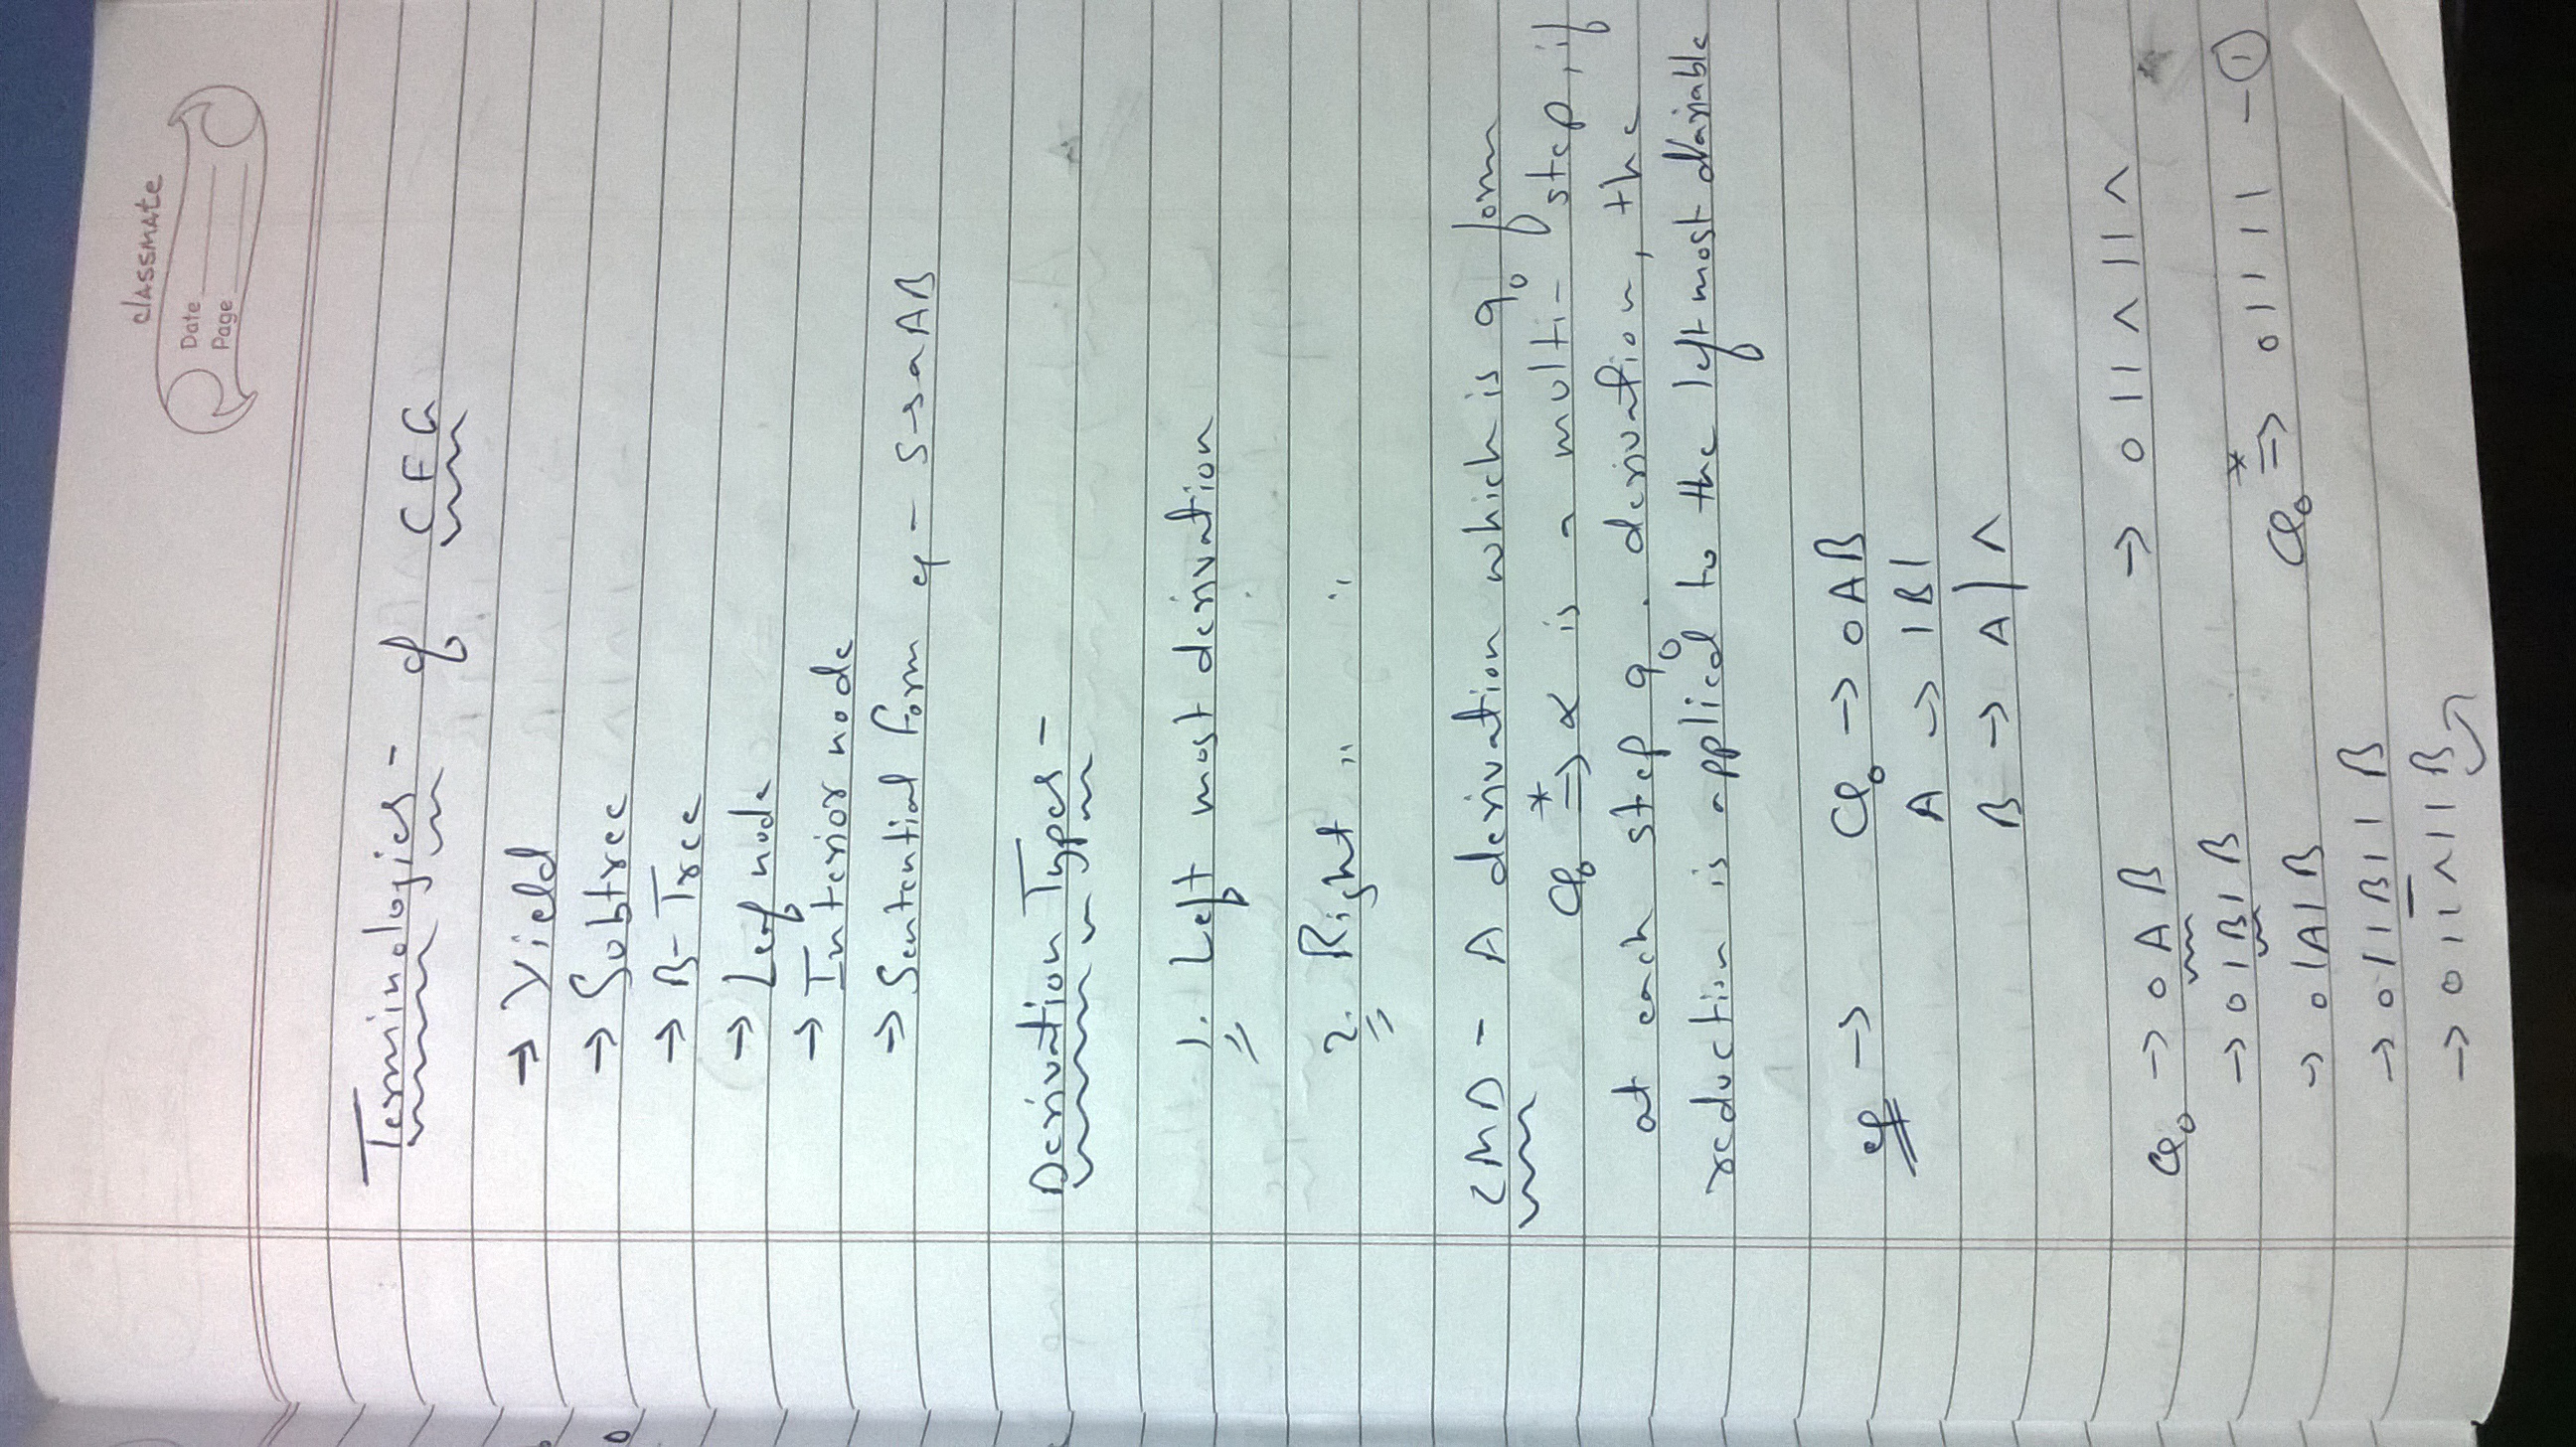 classmate
Date
Page
Terminologies - of CFG
→ Yield
→ Subtree
→ B-Tree
→ Leaf node
→ Interior node
→ Sentential form eg - S→aAB
Derivation Types -
1. Left most derivation
2. Right " "
LMD - A derivation which is q₀ form
Q₀ *⇒ α is a multi-step, if
at each step q₀. derivation, the
reduction is applied to the left most Variable
eg → Q₀ → 0AB
A → 1B1
B → A | ∧
Q₀ → 0AB
→ 01B1B
→ 01A1B
→ 011B11B
→ 011∧11B
→ 011∧11∧
Q₀ *⇒ 01111 - ①